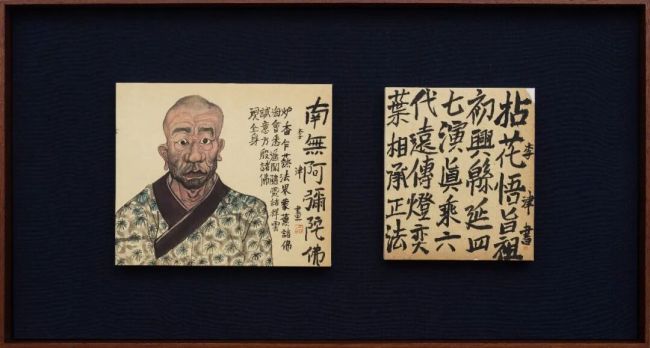 拈花悟旨祖
李津書
初興緜延四
七演眞乘六
代遠傳燈奕
葉相承正法
南無阿彌陀佛
李津畫
炉香乍爇法界蒙薰諸佛
海會悉遙聞隨處結祥雲
誠意方殷諸佛
現全身